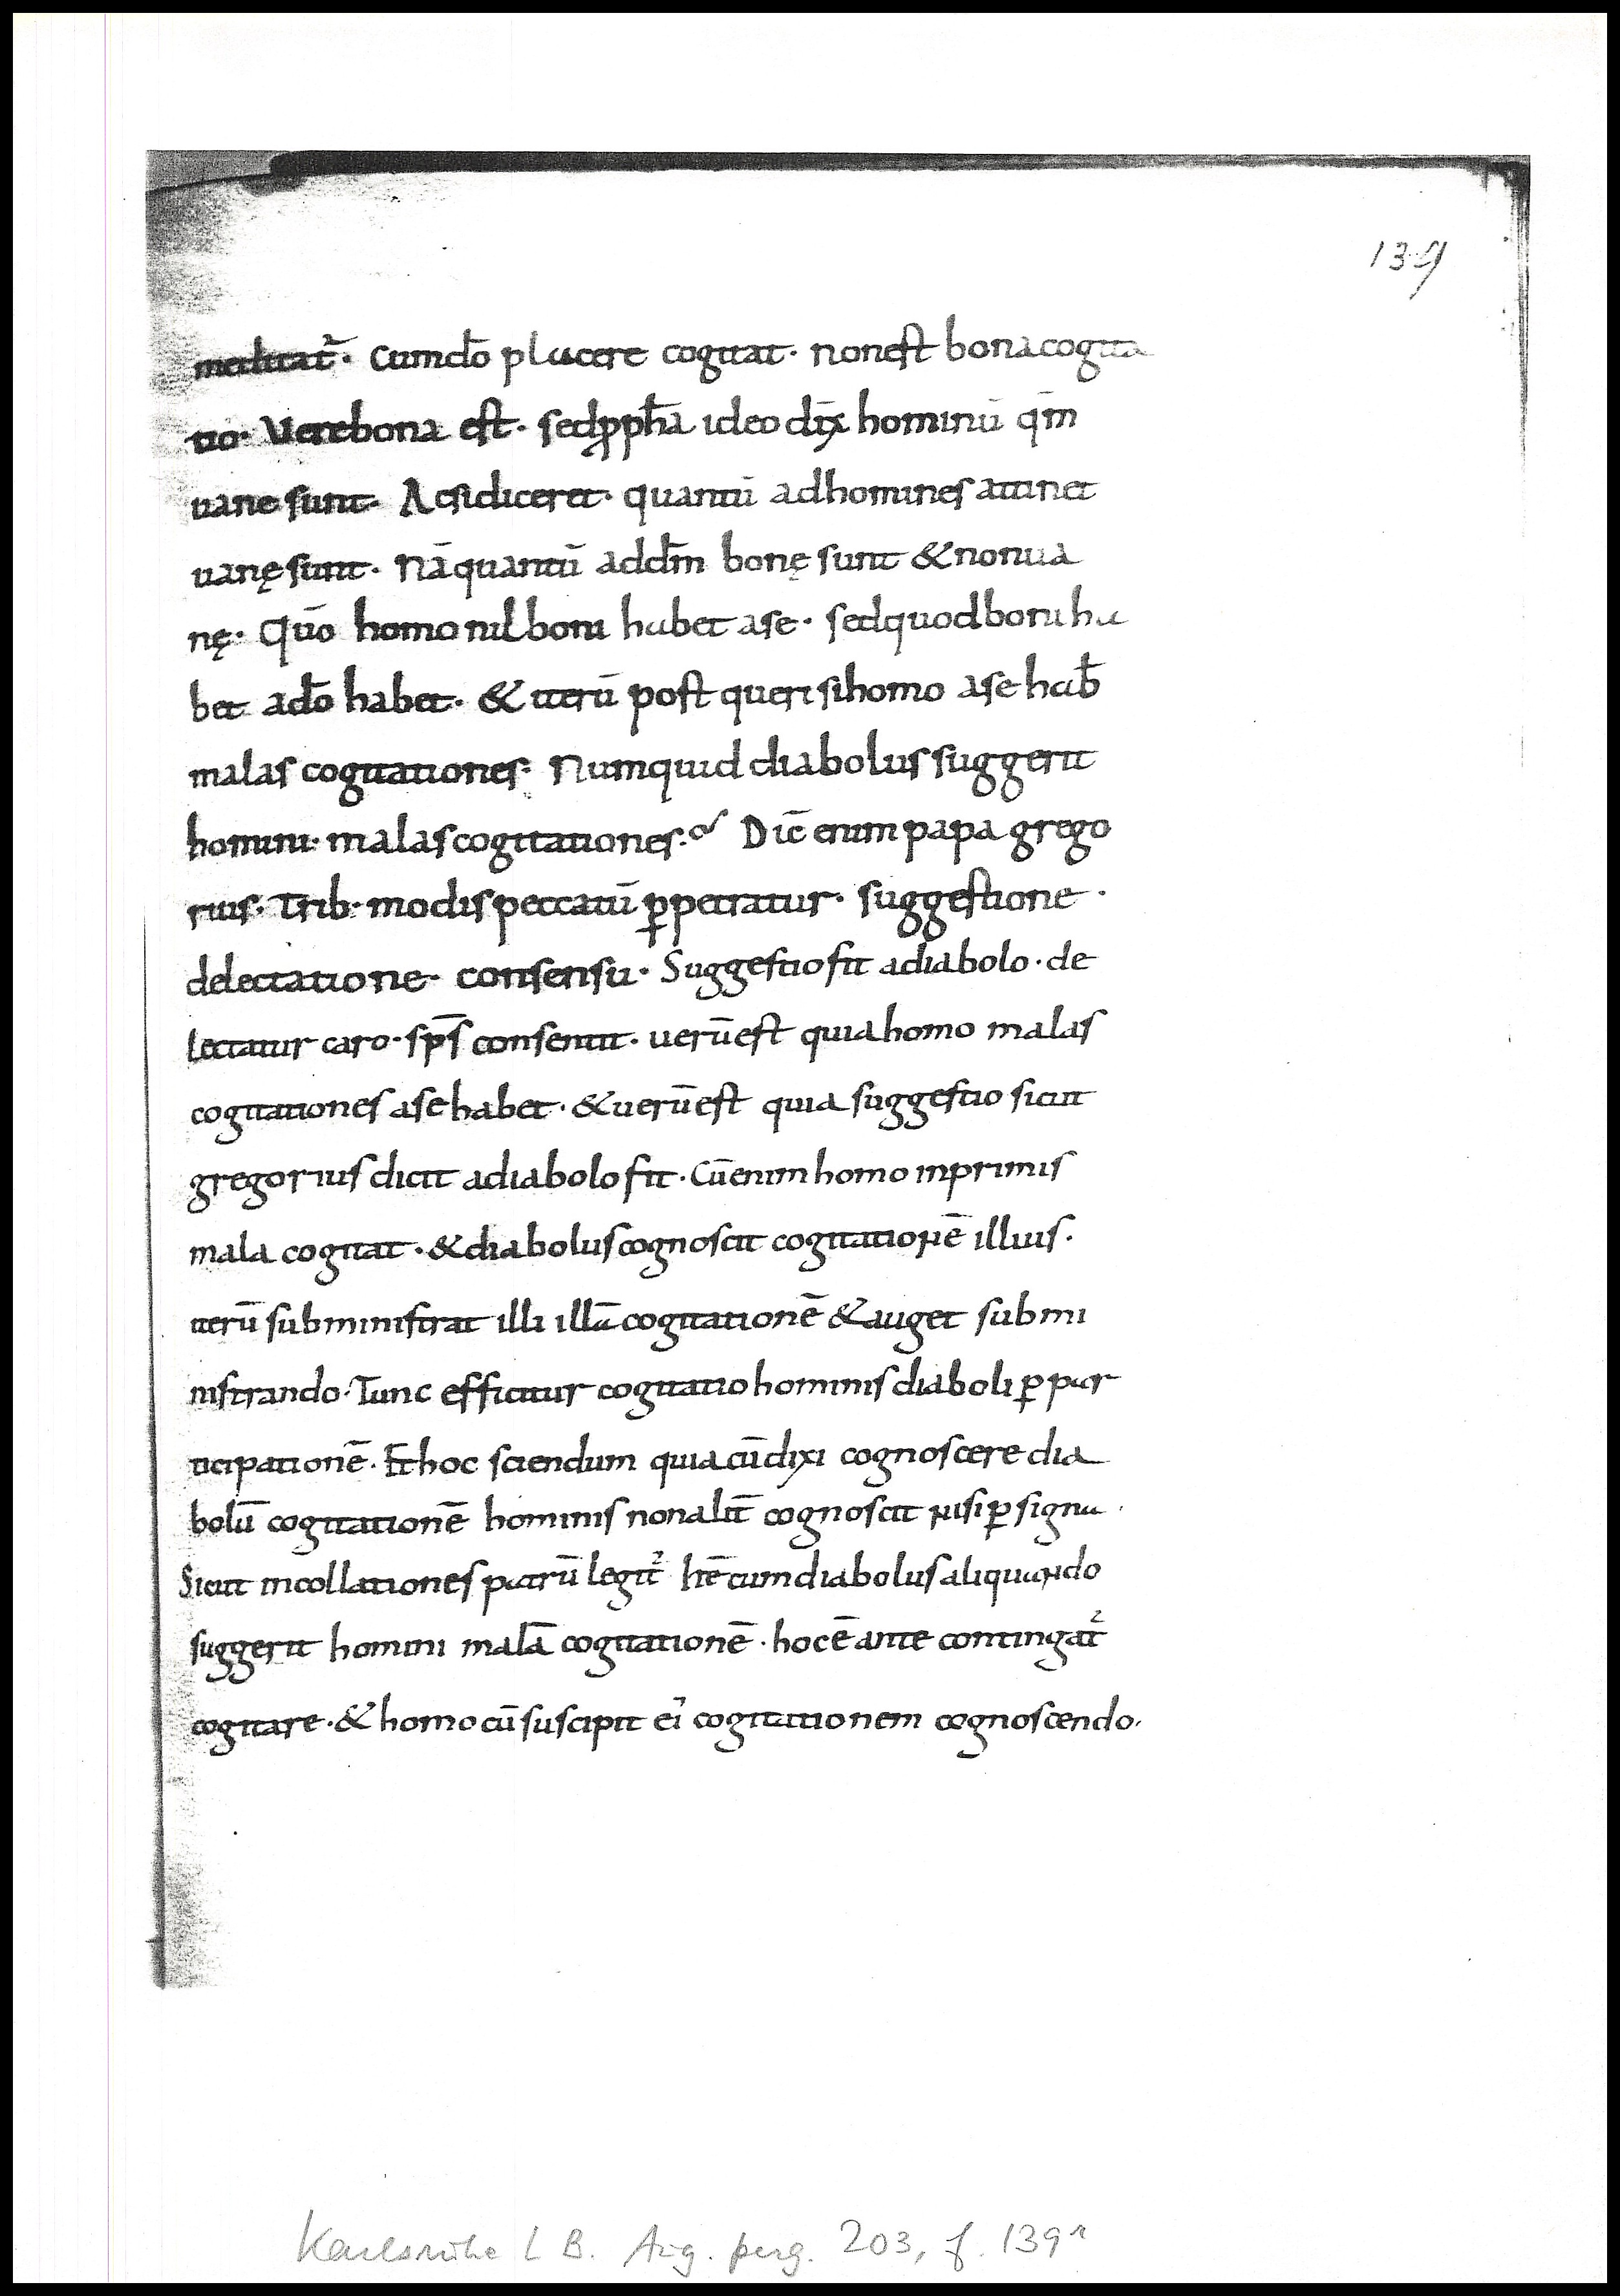 139
meditat᷑· Cumdō placere cogitat· nonest bonacogita
tio· Verebona est· sedꝓph̄a ideo dix̄ hominū qm̄
uane sunt· Acsidiceret· quantū adhomines attinet
uanę sunt· Nāquantū addm̄ bonę sunt &nonua
nę· Qūo homo nil boni habet ase· sedquodboni ha
bet adō habet· & iterū post queri sihomo ase hab̄
malas cogitationes· Numquid diabolus suggerit
homini· malascogitationes· Dic̄ enim papa grego
rius· Trib· modis peccatū ꝑpetratur· suggestione·
delectatione· consensu· Suggestio fit adiabolo· de
lectatur caro· sp̄s consentit· uerūest quiahomo malas
cogitationes asehabet· &uerūest quia suggestio sicut
gregorius dicit adiabolo fit· Cūenim homo inprimis
mala cogitat· &diabolus cognoscit cogitationē illius·
iterū subministrat illi illā cogitationē &auget submi
nistrando· Tunc efficitur cogitatio hominis diaboli ꝑ par
ticipationē· Ethoc sciendum quiacūdixi cognoscere dia
bolū cogitationē hominis nonalit̄ cognoscit nisi ꝑ signa·
Sicut incollationes patrū legit᷑ hēcumdiabolus aliquando
suggerit homini malā cogitationē· hocē ante contingat᷑
cogitare· &homo cūsuscipit ei᾿ cogitationem cognoscendo·
Karlsruhe LB. Aug. perg. 203, f. 139r